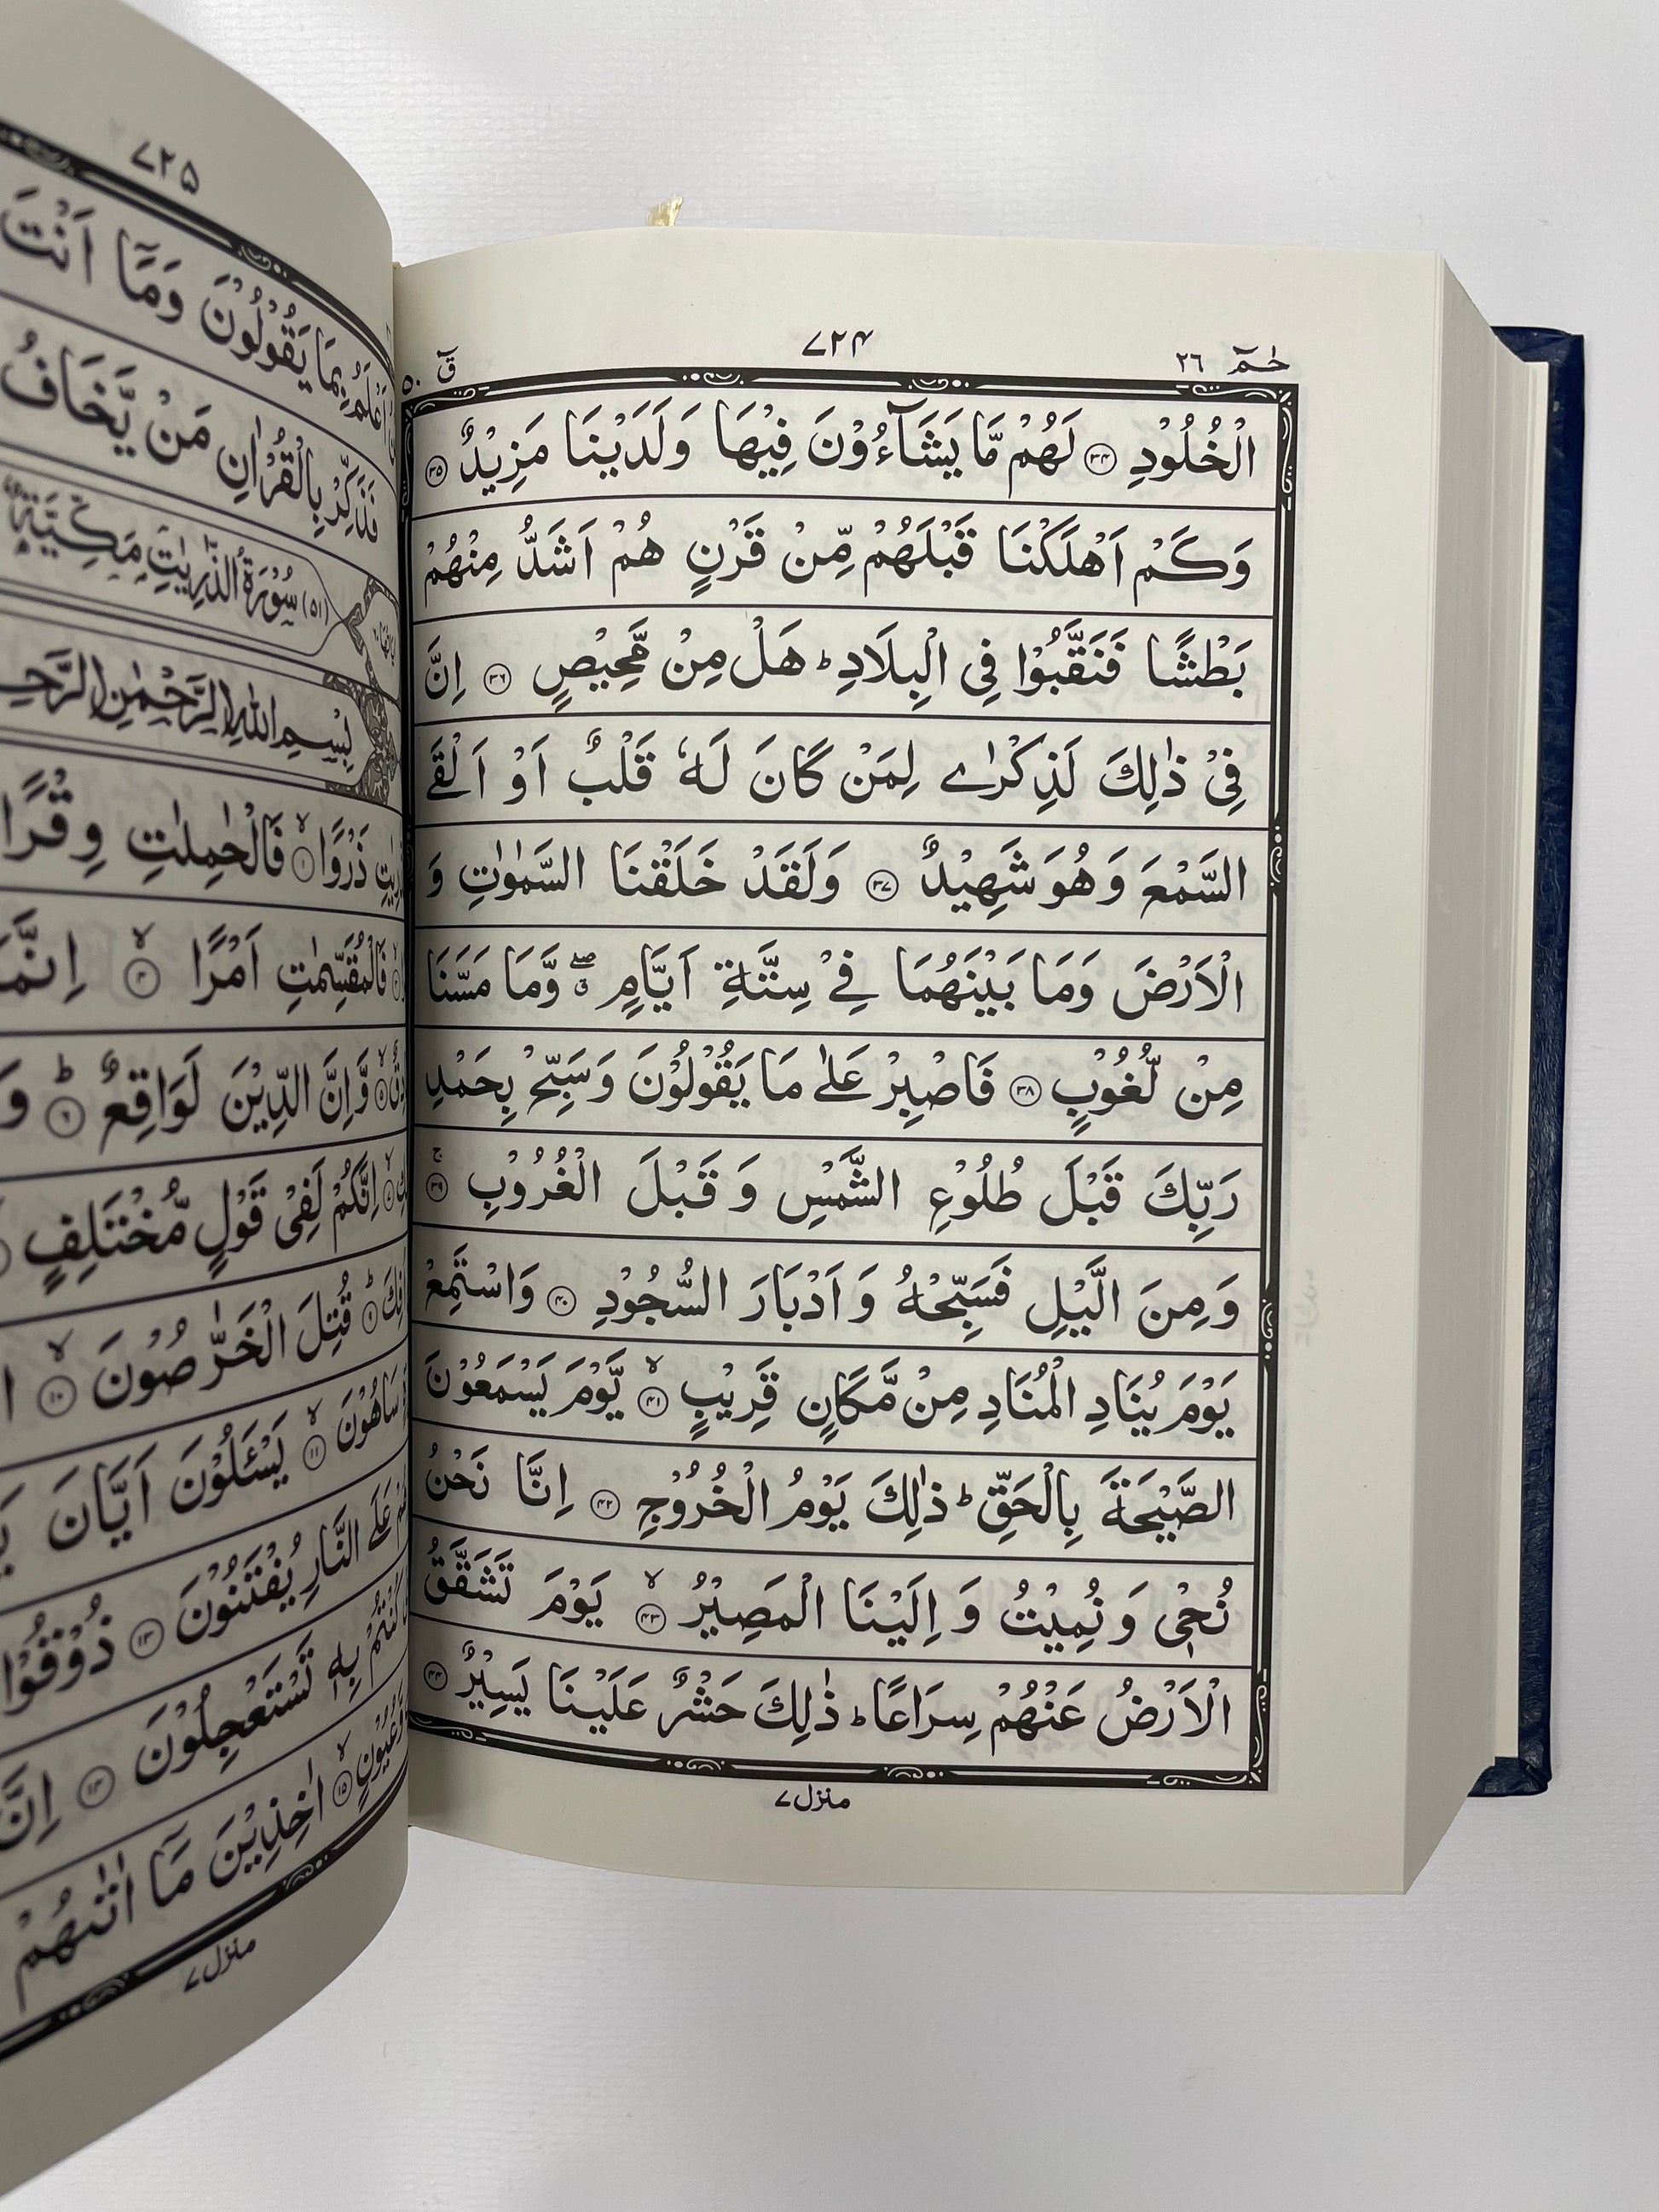 حٰمٓ ٢٦
٧٢۴
قٓ ٥٠
الْخُلُوْدِ ﴿۳۴﴾ لَهُمْ مَّا يَشَآءُوْنَ فِيْهَا وَلَدَيْنَا مَزِيْدٌ ﴿۳۵﴾
وَكَمْ اَهْلَكْنَا قَبْلَهُمْ مِّنْ قَرْنٍ هُمْ اَشَدُّ مِنْهُمْ
بَطْشًا فَنَقَّبُوْا فِى الْبِلَادِ ؕ هَلْ مِنْ مَّحِيْصٍ ﴿۳۶﴾ اِنَّ
فِىْ ذٰلِكَ لَذِكْرٰى لِمَنْ كَانَ لَهٗ قَلْبٌ اَوْ اَلْقَى
السَّمْعَ وَهُوَ شَهِيْدٌ ﴿۳۷﴾ وَلَقَدْ خَلَقْنَا السَّمٰوٰتِ وَ
الْاَرْضَ وَمَا بَيْنَهُمَا فِىْ سِتَّةِ اَيَّامٍ ۖۗ وَّمَا مَسَّنَا
مِنْ لُّغُوْبٍ ﴿۳۸﴾ فَاصْبِرْ عَلٰى مَا يَقُوْلُوْنَ وَسَبِّحْ بِحَمْدِ
رَبِّكَ قَبْلَ طُلُوْعِ الشَّمْسِ وَقَبْلَ الْغُرُوْبِ ۚ ﴿۳۹﴾
وَمِنَ الَّيْلِ فَسَبِّحْهُ وَاَدْبَارَ السُّجُوْدِ ﴿۴۰﴾ وَاسْتَمِعْ
يَوْمَ يُنَادِ الْمُنَادِ مِنْ مَّكَانٍ قَرِيْبٍ ۙ ﴿۴۱﴾ يَّوْمَ يَسْمَعُوْنَ
الصَّيْحَةَ بِالْحَقِّ ؕ ذٰلِكَ يَوْمُ الْخُرُوْجِ ﴿۴۲﴾ اِنَّا نَحْنُ
نُحْىٖ وَنُمِيْتُ وَاِلَيْنَا الْمَصِيْرُ ۙ ﴿۴۳﴾ يَوْمَ تَشَقَّقُ
الْاَرْضُ عَنْهُمْ سِرَاعًا ؕ ذٰلِكَ حَشْرٌ عَلَيْنَا يَسِيْرٌ ﴿۴۴﴾
منزل ٧
٧٢۵
اَعْلَمُ بِمَا يَقُوْلُوْنَ وَمَآ اَنْتَ
فَذَكِّرْ بِالْقُرْاٰنِ مَنْ يَّخَافُ
(٥١) سُوْرَةُ الذّٰرِيٰتِ مَكِّيَّةٌ
بِسْمِ اللّٰهِ الرَّحْمٰنِ
ذَرْوًا ۙ ﴿۱﴾ فَالْحٰمِلٰتِ وِقْرًا
فَالْمُقَسِّمٰتِ اَمْرًا ۙ ﴿۴﴾ اِنَّمَا
وَّاِنَّ الدِّيْنَ لَوَاقِعٌ ؕ ﴿۶﴾
اِنَّكُمْ لَفِىْ قَوْلٍ مُّخْتَلِفٍ
قُتِلَ الْخَرّٰصُوْنَ ۙ ﴿۱۰﴾
سَاهُوْنَ ۙ ﴿۱۱﴾ يَسْـَٔلُوْنَ اَيَّانَ
عَلَى النَّارِ يُفْتَنُوْنَ ﴿۱۳﴾ ذُوْقُوْا
كُنْتُمْ بِهٖ تَسْتَعْجِلُوْنَ ﴿۱۴﴾ اِنَّ
وَّعُيُوْنٍ ۙ ﴿۱۵﴾ اٰخِذِيْنَ مَآ اٰتٰىهُمْ
منزل ٧